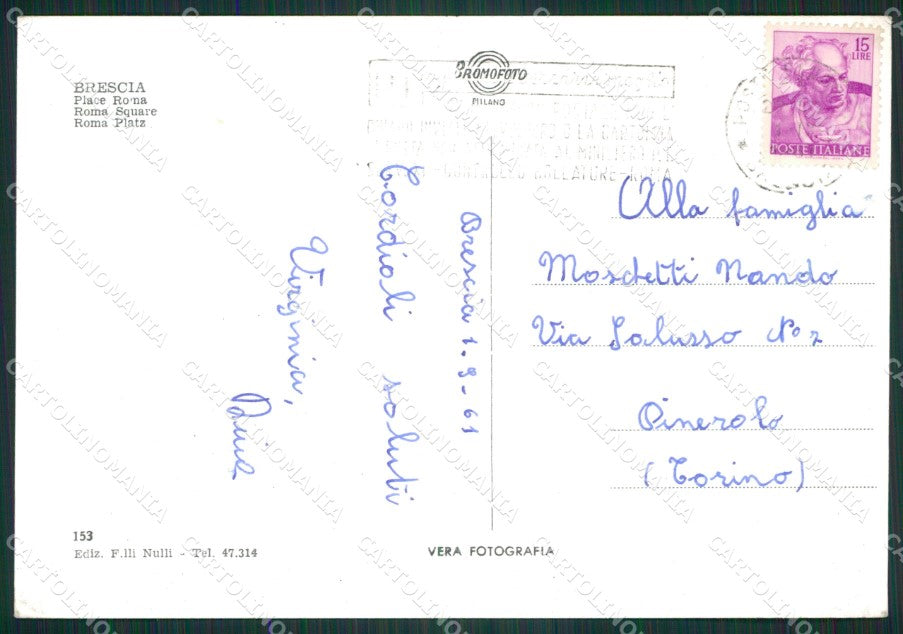 BRESCIA
Place Roma
Roma Square
Roma Platz
BROMOFOTO
MILANO
15
LIRE
POSTE ITALIANE
Brescia 1.9-61
Cordiali saluti
Virginia,
Alla famiglia
Moschetti Nando
Via Saluzzo N° 2
Pinerolo
(Torino)
153
Ediz. F.lli Nulli - Tel. 47.314
VERA FOTOGRAFIA
CARTOLINOMANIA